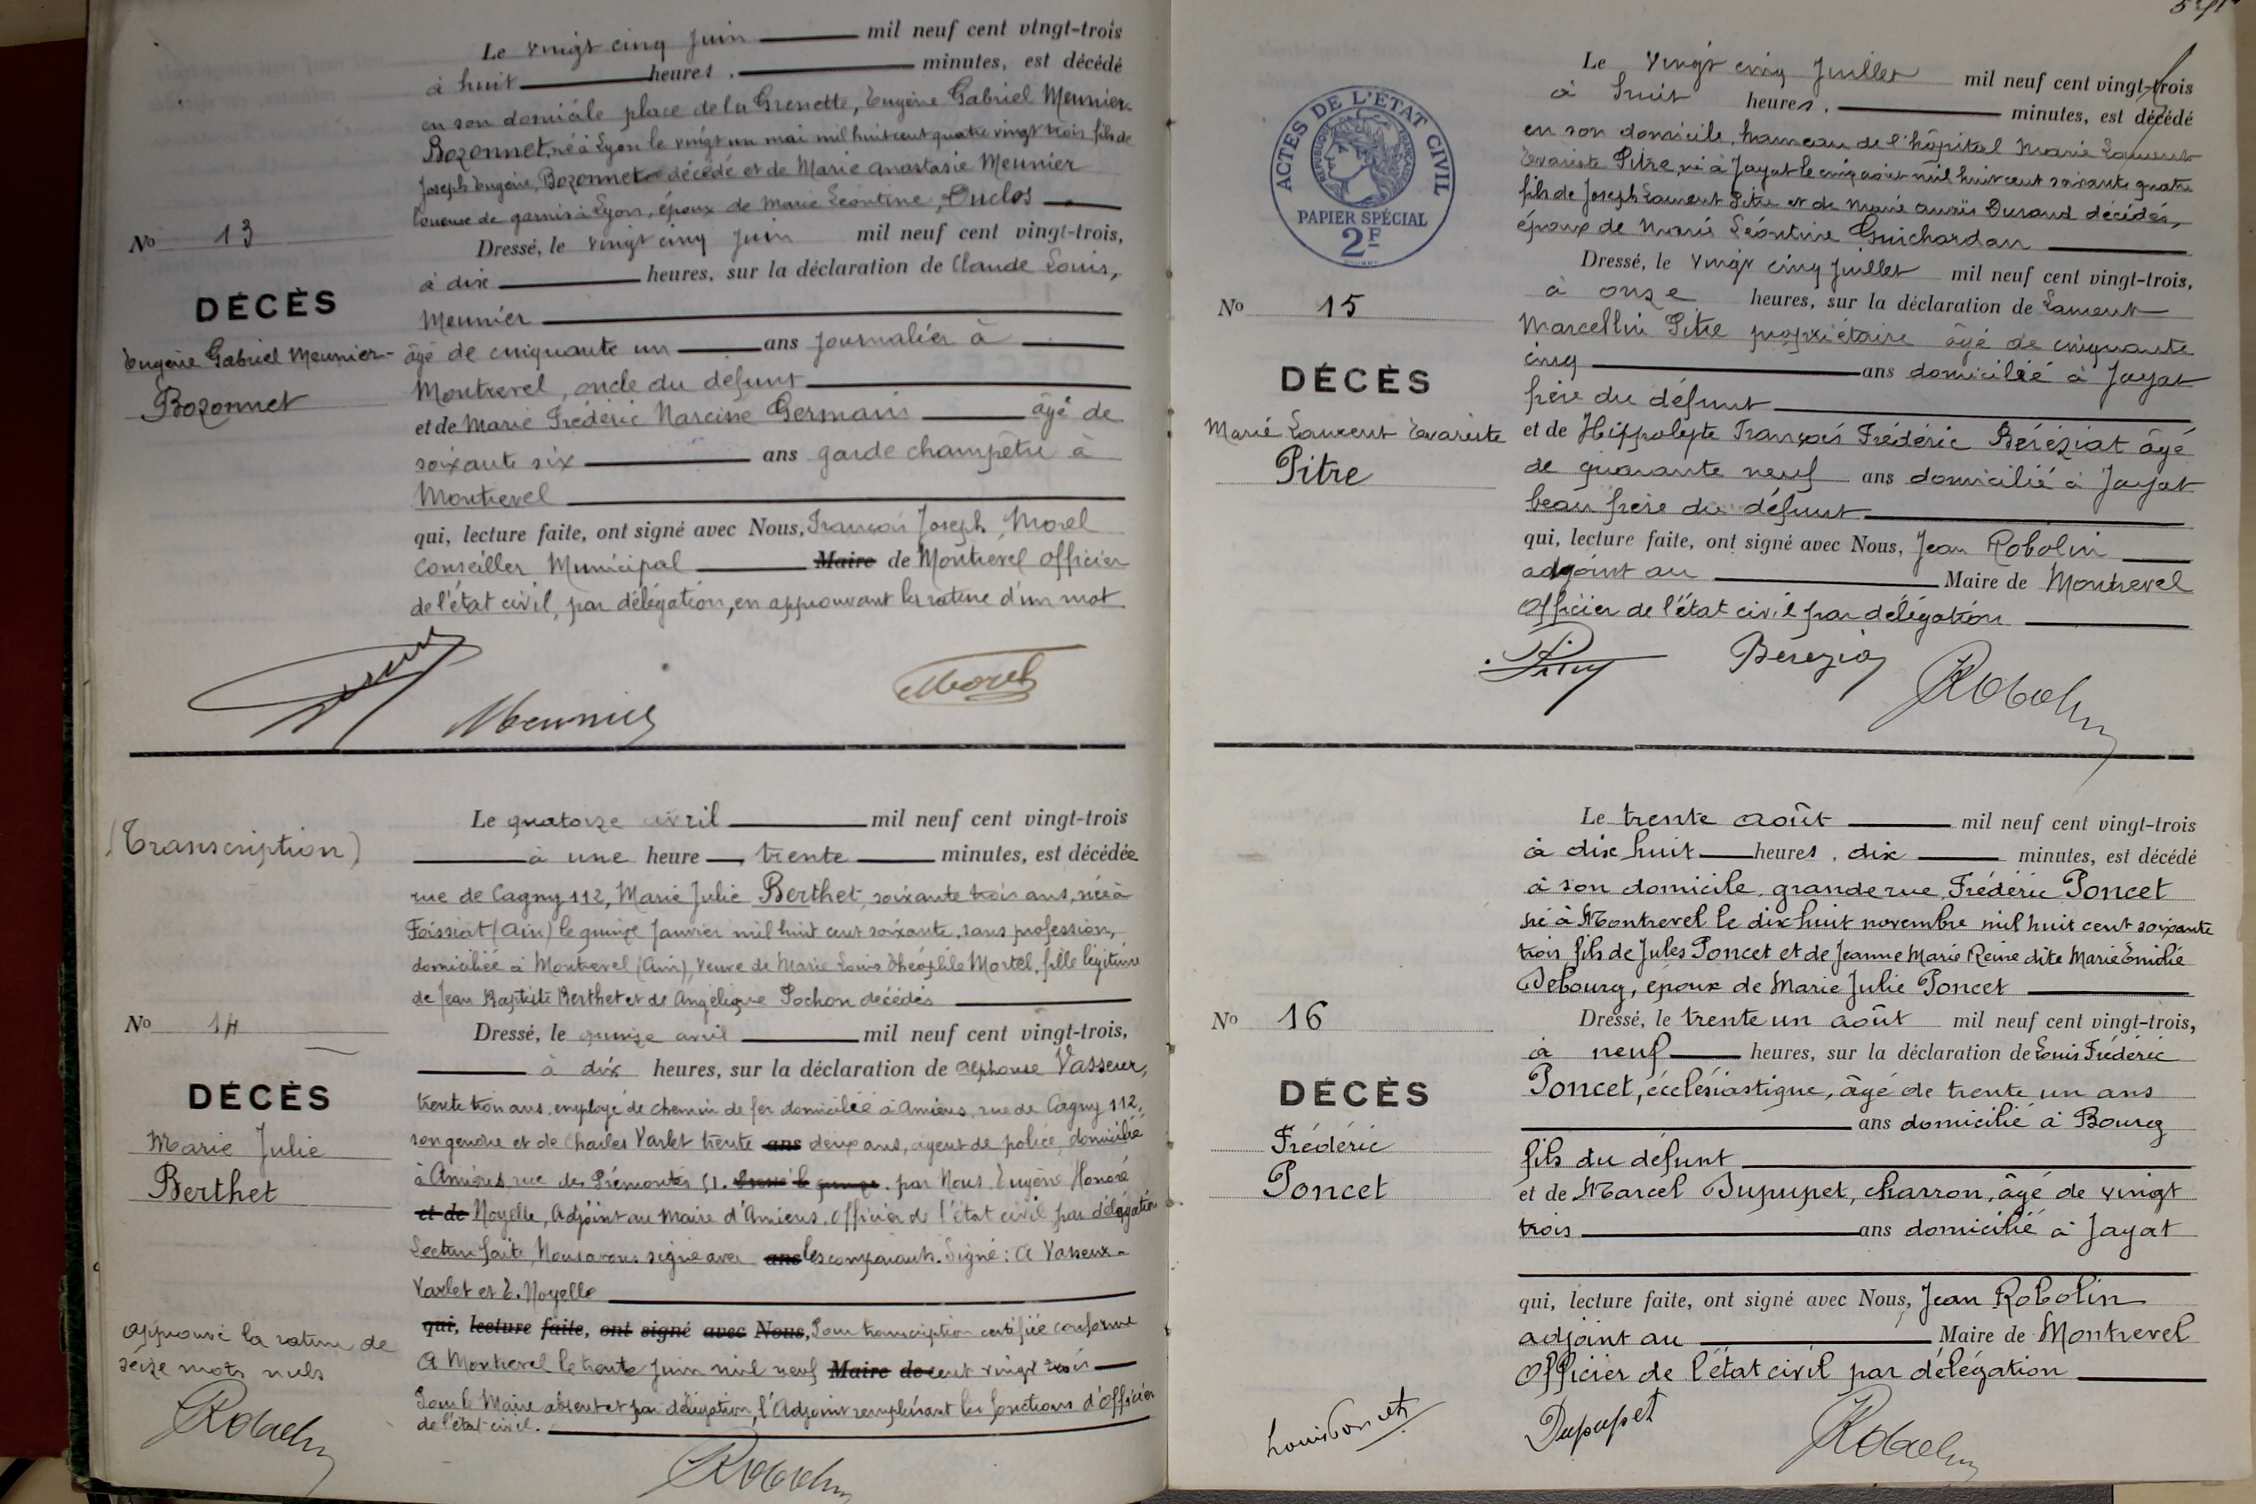 Le vingt cinq Juin mil neuf cent vingt-trois
à huit heures, minutes, est décédé
en son domicile place de la Grenette, Eugène Gabriel Meunier-
Bozonnet, né à Lyon le vingt un mai mil huit cent quatre vingt trois fils de
Joseph Eugène, Bozonnet décédé et de Marie Anastasie Meunier
loueuse de garnis à Lyon, époux de Marie Léontine, Duclos
No 13
Dressé, le vingt cinq Juin mil neuf cent vingt-trois,
à dix heures, sur la déclaration de Claude Louis,
DÉCÈS
Meunier
Eugène Gabriel Meunier-
âgé de cinquante un ans journalier à
Bozonnet
Montrevel, oncle du défunt
et de Marie Frédéric Narcisse Germain âgé de
soixante six ans garde champêtre à
Montrevel
qui, lecture faite, ont signé avec Nous, François Joseph Morel
Conseiller Municipal Maire de Montrevel officier
de l'état civil, par délégation, en approuvant la rature d'un mot
Meunier
Morel
(Transcription)
Le quatorze avril mil neuf cent vingt-trois
à une heure, trente minutes, est décédée
rue de Cagny 112, Marie Julie Berthet, soixante trois ans, née à
Foissiat (Ain) le quinze Janvier mil huit cent soixante, sans profession,
domiciliée à Montrevel (Ain), veuve de Marie Louis Théophile Mortel, fille légitime
de Jean Baptiste Berthet et de Angélique Pochon décédés
No 14
Dressé, le quinze avril mil neuf cent vingt-trois,
à dix heures, sur la déclaration de Alphonse Vasseur,
DÉCÈS
trente trois ans, employé de chemin de fer domicilié à Amiens, rue de Cagny 112,
Marie Julie
son gendre et de Charles Varlet trente ans deux ans, agent de police, domicilié
Berthet
à Amiens rue des Prémontrés 51. par Nous Eugène Honoré
et de Noyelle, Adjoint au Maire d'Amiens, officier de l'état civil par délégation
Lecture faite, Nous avons signé avec ans les comparants. Signé: A Vasseur -
Varlet et E. Noyelle
qui, lecture faite, ont signé avec Nous, Pour transcription certifiée conforme
approuvé la rature de
seize mots nuls
A Montrevel le trente Juin mil neuf Maire de cent vingt trois
Pour le Maire absent et par délégation, l'Adjoint remplissant les fonctions d'officier
de l'état civil.
Robolin
Robolin
ACTES DE L'ETAT CIVIL
REPUBLIQUE FRANÇAISE
PAPIER SPÉCIAL
2F
Le vingt cinq Juillet mil neuf cent vingt-trois
à huit heures, minutes, est décédé
en son domicile, hameau de l'hôpital Marie Laurent
Evariste Pitre, né à Jayat le cinq août mil huit cent soixante quatre
fils de Joseph Laurent Pitre et de Marie Durand décédés,
époux de Marie Léontine Guichardan
Dressé, le vingt cinq Juillet mil neuf cent vingt-trois,
à onze heures, sur la déclaration de Laurent
No 15
Marcellin Pitre propriétaire âgé de cinquante
cinq ans domicilié à Jayat
DÉCÈS
frère du défunt
Marie Laurent Evariste
Pitre
et de Hippolyte François Frédéric Béréziat âgé
de quarante neuf ans domicilié à Jayat
beau frère du défunt
qui, lecture faite, ont signé avec Nous, Jean Robolin
adjoint au Maire de Montrevel
Officier de l'état civil par délégation
Béréziat
Robolin
Le trente août mil neuf cent vingt-trois
à dix huit heures, dix minutes, est décédé
à son domicile, grande rue, Frédéric Poncet
né à Montrevel le dix huit novembre mil huit cent soixante
trois fils de Jules Poncet et de Jeanne Marie Reine dite Marie Emilie
Debourg, époux de Marie Julie Poncet
No 16
Dressé, le trente un août mil neuf cent vingt-trois,
à neuf heures, sur la déclaration de Louis Frédéric
DÉCÈS
Poncet, écclésiastique, âgé de trente un ans
ans domicilié à Bourg
Frédéric
Poncet
fils du défunt
et de Marcel Dupupet, charron, âgé de vingt
trois ans domicilié à Jayat
qui, lecture faite, ont signé avec Nous, Jean Robolin
adjoint au Maire de Montrevel
Officier de l'état civil par délégation
Louis Poncet
Dupupet
Robolin